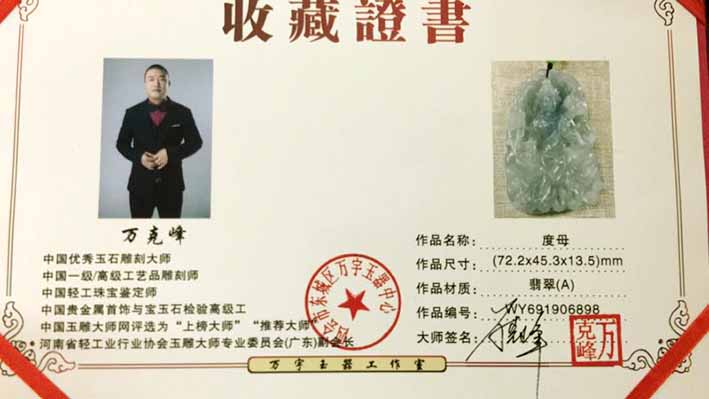 收藏證書
万克峰
中国优秀玉石雕刻大师
中国一级/高级工艺品雕刻师
中国轻工珠宝鉴定师
中国贵金属首饰与宝玉石检验高级工
中国玉雕大师网评选为“上榜大师”“推荐大师”
河南省轻工业行业协会玉雕大师专业委员会(广东)副会长
作品名称: 度母
作品尺寸: (72.2x45.3x13.5)mm
作品材质: 翡翠(A)
作品编号: WY691906898
大师签名: 万克峰
市东城区万宇玉器中心
万克峰
万宇玉器工作室